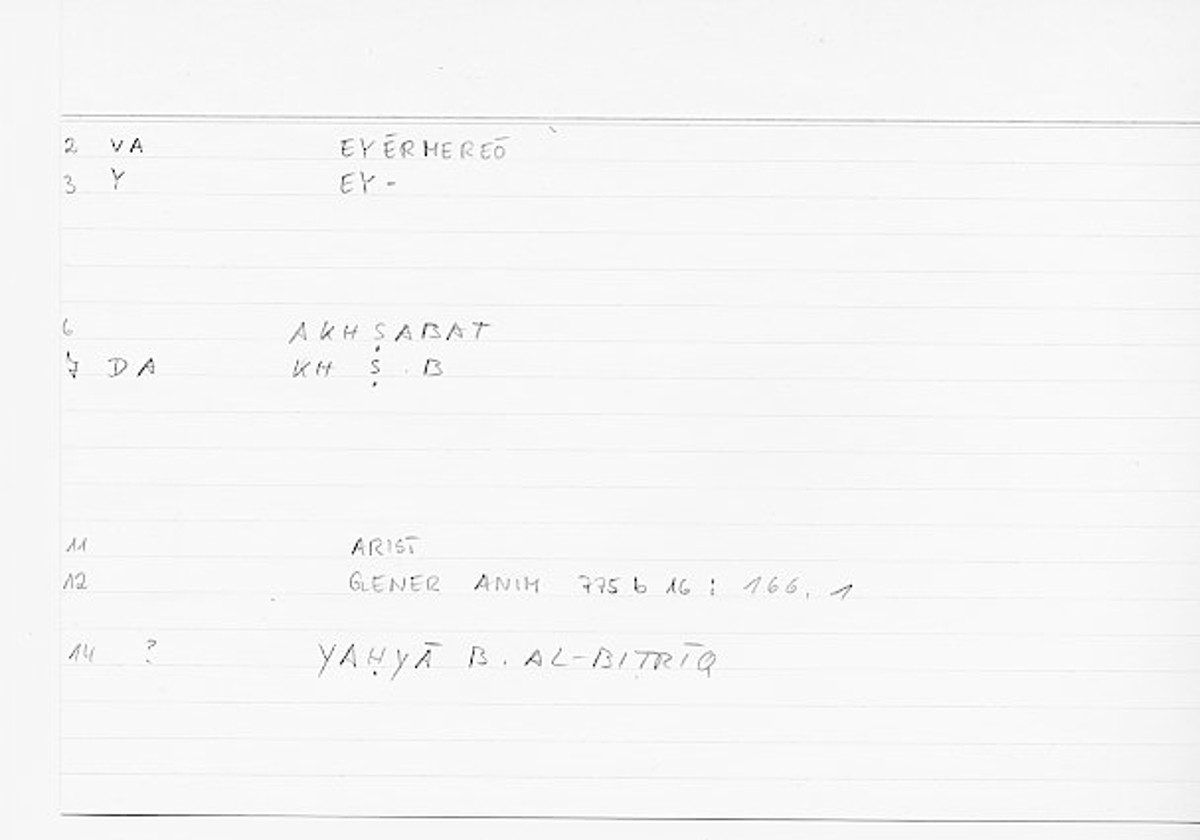 2 VA EYĒRMEREŌ
3 Y EY-
6 AKHṢABAT
7 DA KH Ṣ . B
11 ARIST
12 GENER ANIM 775 b 16 : 166, 1
14 ? YAḤYĀ B. AL-BIṬRĪQ